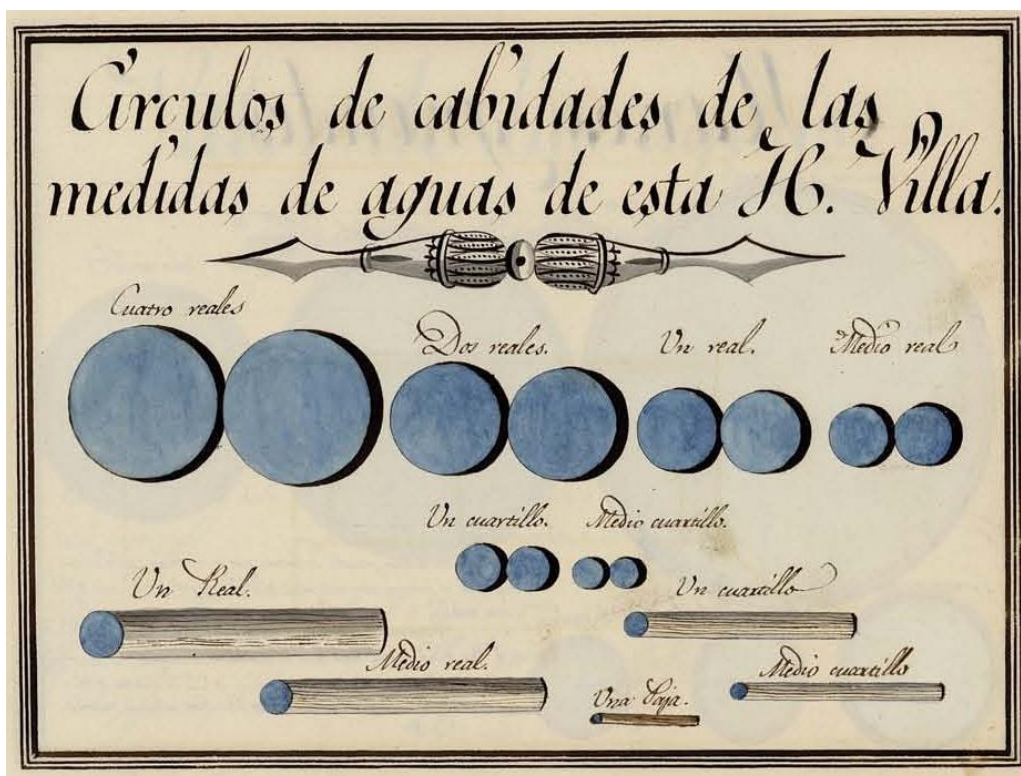 Circulos de cabidades de las
medidas de aguas de esta H. Villa.
Cuatro reales
Dos reales.
Un real.
Medio real
Un cuartillo.
Medio cuartillo.
Un Real.
Un cuartillo
Medio real.
Medio cuartillo
Una Paja.